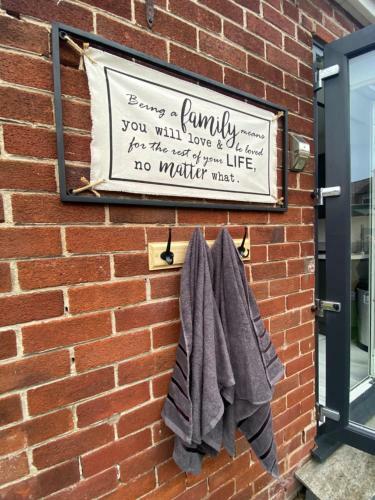 Being a family means
you will love & be loved
for the rest of your LIFE,
no matter what.